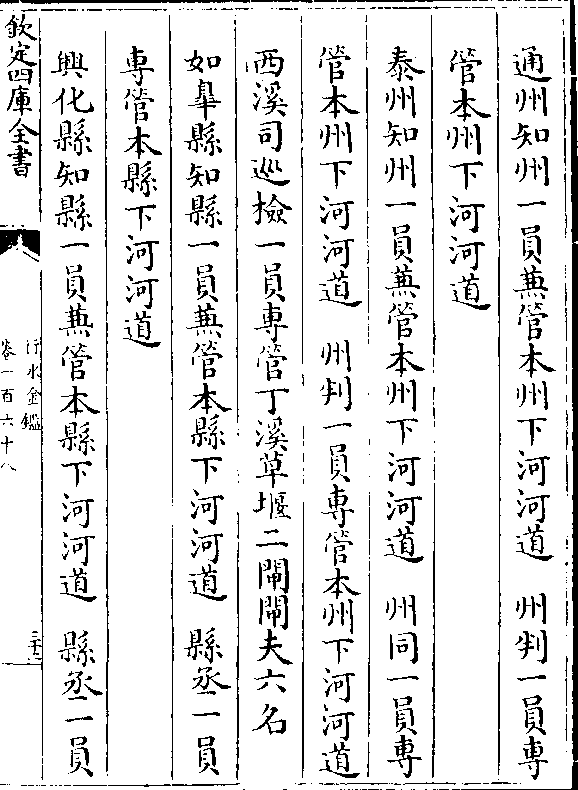 通州知州一員兼管本州下河河道　州判一員專
管本州下河河道
泰州知州一員兼管本州下河河道　州同一員專
管本州下河河道　州判一員專管本州下河河道
西溪司巡檢一員專管丁溪草堰二閘閘夫六名
如臯縣知縣一員兼管本縣下河河道　縣丞一員
專管本縣下河河道
興化縣知縣一員兼管本縣下河河道　縣丞一員
欽定四庫全書
行水金鑑
卷一百六十八